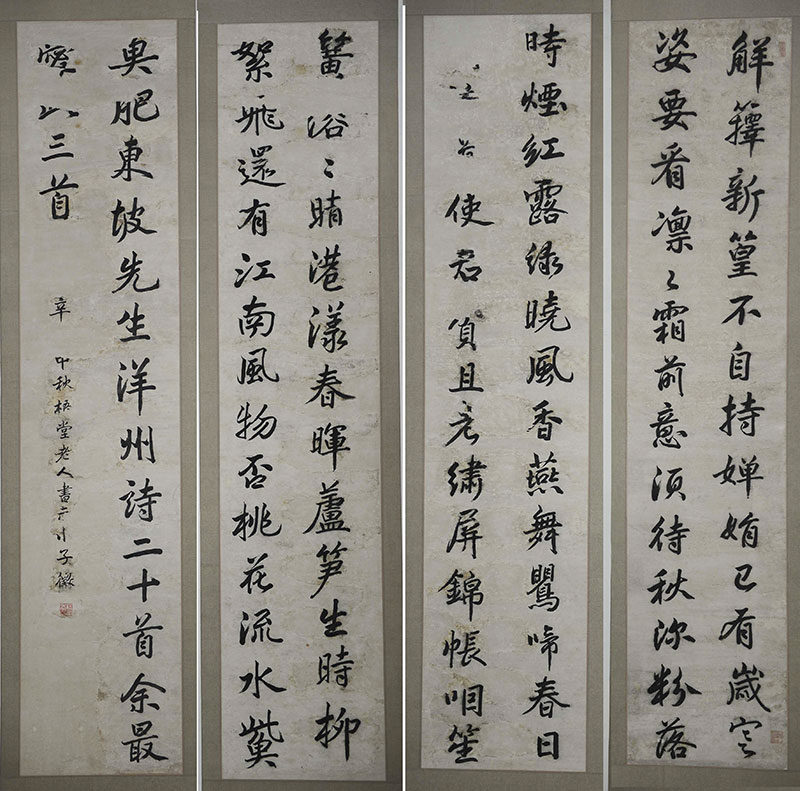 解籜新篁不自持嬋娟已有歲寒
姿要看凛〻霜前意須待秋深粉落
時煙紅露綠曉風香燕舞鶯啼春日
使君貧且老繡屏錦帳咽笙
簧溶〻晴港漾春暉蘆笋生時柳
絮飛還有江南風物否桃花流水鮆
魚肥東坡先生洋州詩二十首余最
愛此三首
辛 中秋梧堂老人書